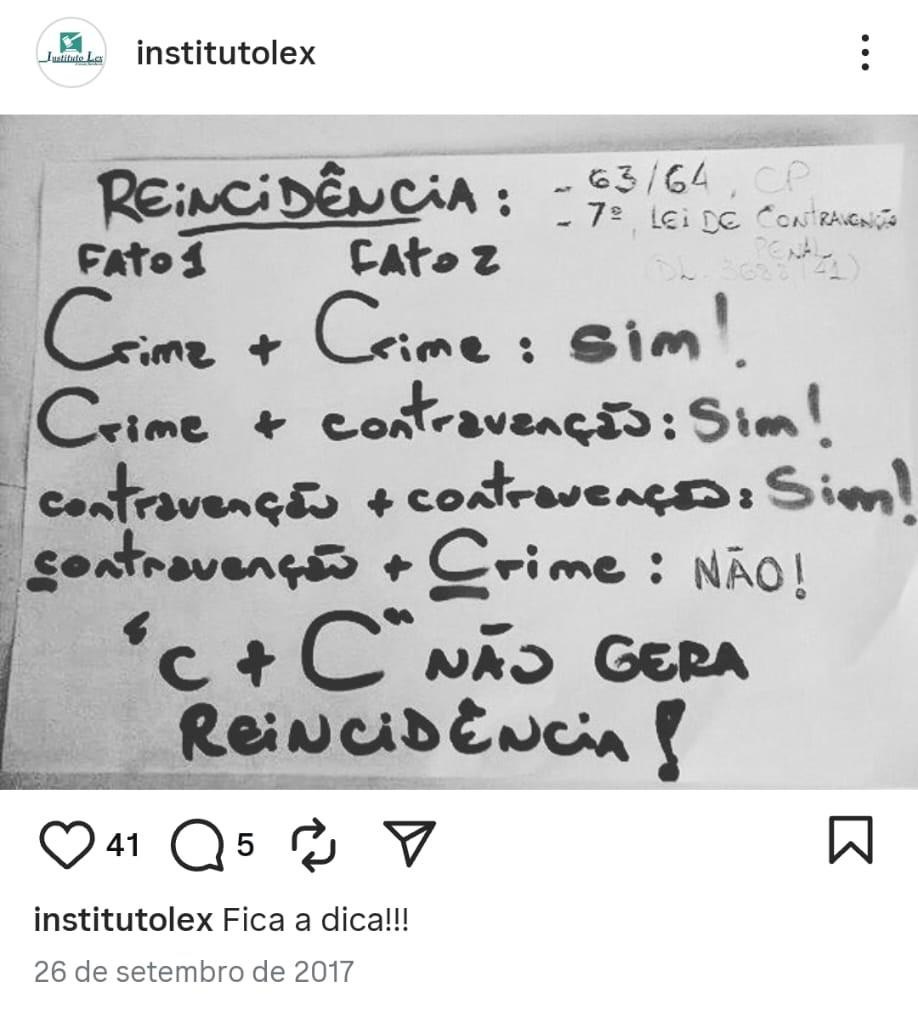 Instituto Lex
institutolex
REiNCiDÊNCiA: - 63/64, CP
- 7º, LEi DE CONTRAVENÇÃO
PENAL
(DL. 3688/41)
FATO 1 FATO 2
Crime + Crime: sim!
Crime + contravenção: Sim!
contravenção + contravenção: Sim!
contravenção + Crime: NÃO!
"c + C" NÃO GERA
REiNCiDÊNCiA!
41 5
institutolex Fica a dica!!!
26 de setembro de 2017